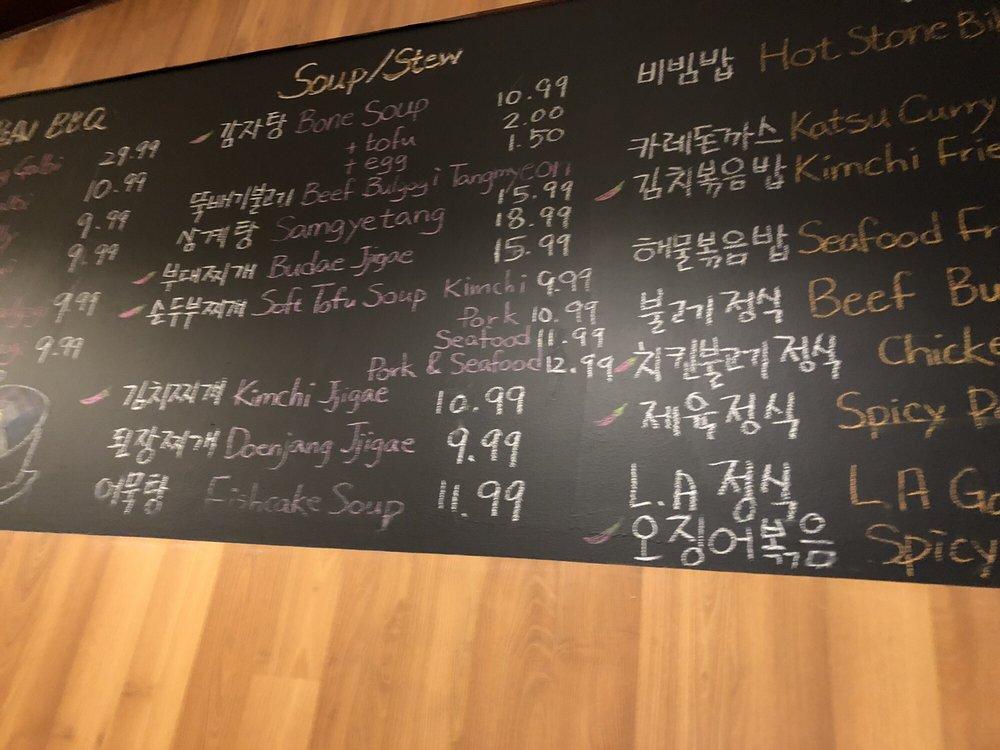 BBQ
29.99
10.99
9.99
9.99
9.99
9.99
Soup/Stew
감자탕 Bone Soup 10.99
+ tofu 2.00
+ egg 1.50
뚝배기불고기 Beef Bulgogi Tangmyeon 15.99
삼계탕 Samgyetang 18.99
부대찌개 Budae Jjigae 15.99
순두부찌개 Soft Tofu Soup Kimchi 9.99
Pork 10.99
Seafood 11.99
Pork & Seafood 12.99
김치찌개 Kimchi Jjigae 10.99
된장찌개 Doenjang Jjigae 9.99
어묵탕 Fishcake Soup 11.99
비빔밥 Hot Stone Bi
카레돈까스 Katsu Curry
김치볶음밥 Kimchi Frie
해물볶음밥 Seafood Fr
불고기정식 Beef Bu
치킨불고기정식 Chicke
제육정식 Spicy
L.A 정식 LA Ga
오징어볶음 Spicy